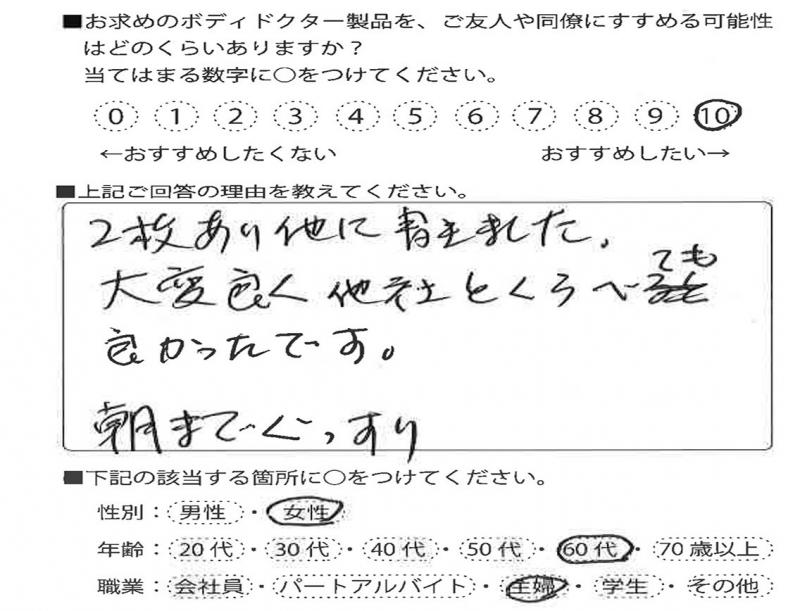 ■お求めのボディドクター製品を、ご友人や同僚にすすめる可能性
はどのくらいありますか？
当てはまる数字に○をつけてください。
0 1 2 3 4 5 6 7 8 9 10
←おすすめしたくない おすすめしたい→
■上記ご回答の理由を教えてください。
2枚あり他に
ました。
大変良く他社とくらべ
ても
良かったです。
朝までぐっすり
■下記の該当する箇所に○をつけてください。
性別：男性・女性
年齢：20代・30代・40代・50代・60代・70歳以上
職業：会社員・パートアルバイト・主婦・学生・その他